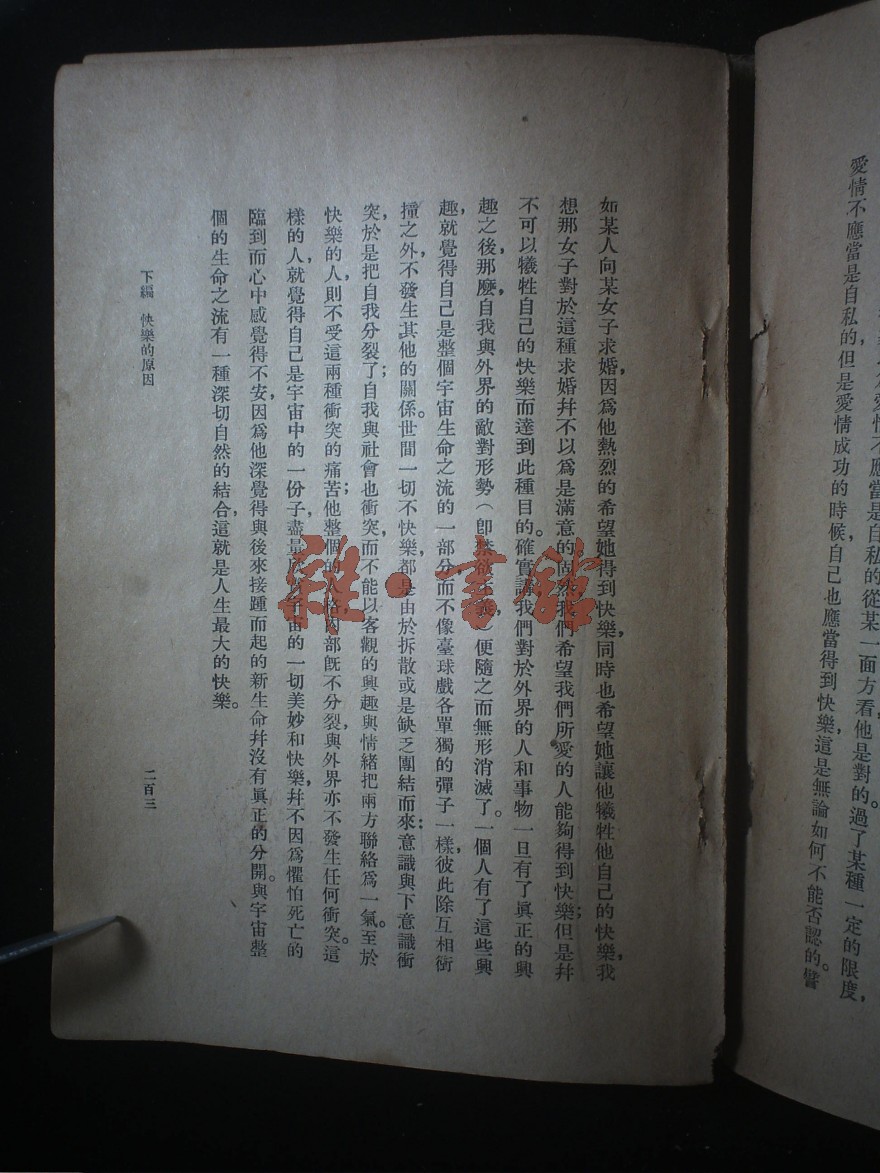 愛情不應當是自私的從某一面方看他是對的。過了某種一定的限度，
愛情不應當是自私的，但是愛情成功的時候，自己也應當得到快樂，這是無論如何不能否認的。譬
如某人向某女子求婚，因爲他熱烈的希望她得到快樂，同時也希望她讓他犧牲他自己的快樂，我
想那女子對於這種求婚幷不以爲是滿意的。固然我們希望我們所愛的人能夠得到快樂；但是幷
不可以犧牲自己的快樂而達到此種目的。確實講，我們對於外界的人和事物一旦有了眞正的興
趣之後，那麼，自我與外界的敵對形勢（卽禁欲主義）便隨之而無形消滅了。一個人有了這些興
趣，就覺得自己是整個宇宙生命之流的一部分，而不像臺球戲各單獨的彈子一樣，彼此除互相衝
撞之外，不發生其他的關係。世間一切不快樂，都是由於拆散或是缺乏團結而來：意識與下意識衝
突，於是把自我分裂了；自我與社會也衝突，而不能以客觀的興趣與情緒把兩方聯絡爲一氣。至於
快樂的人，則不受這兩種衝突的痛苦；他整個的人格內部旣不分裂，與外界亦不發生任何衝突。這
樣的人，就覺得自己是宇宙中的一份子，盡量宇宙的一切美妙和快樂，幷不因爲懼怕死亡的
臨到而心中感覺得不安，因爲他深覺得與後來接踵而起的新生命幷沒有眞正的分開。與宇宙整
個的生命之流有一種深切自然的結合，這就是人生最大的快樂。
下編　快樂的原因
二百三
雜·書館